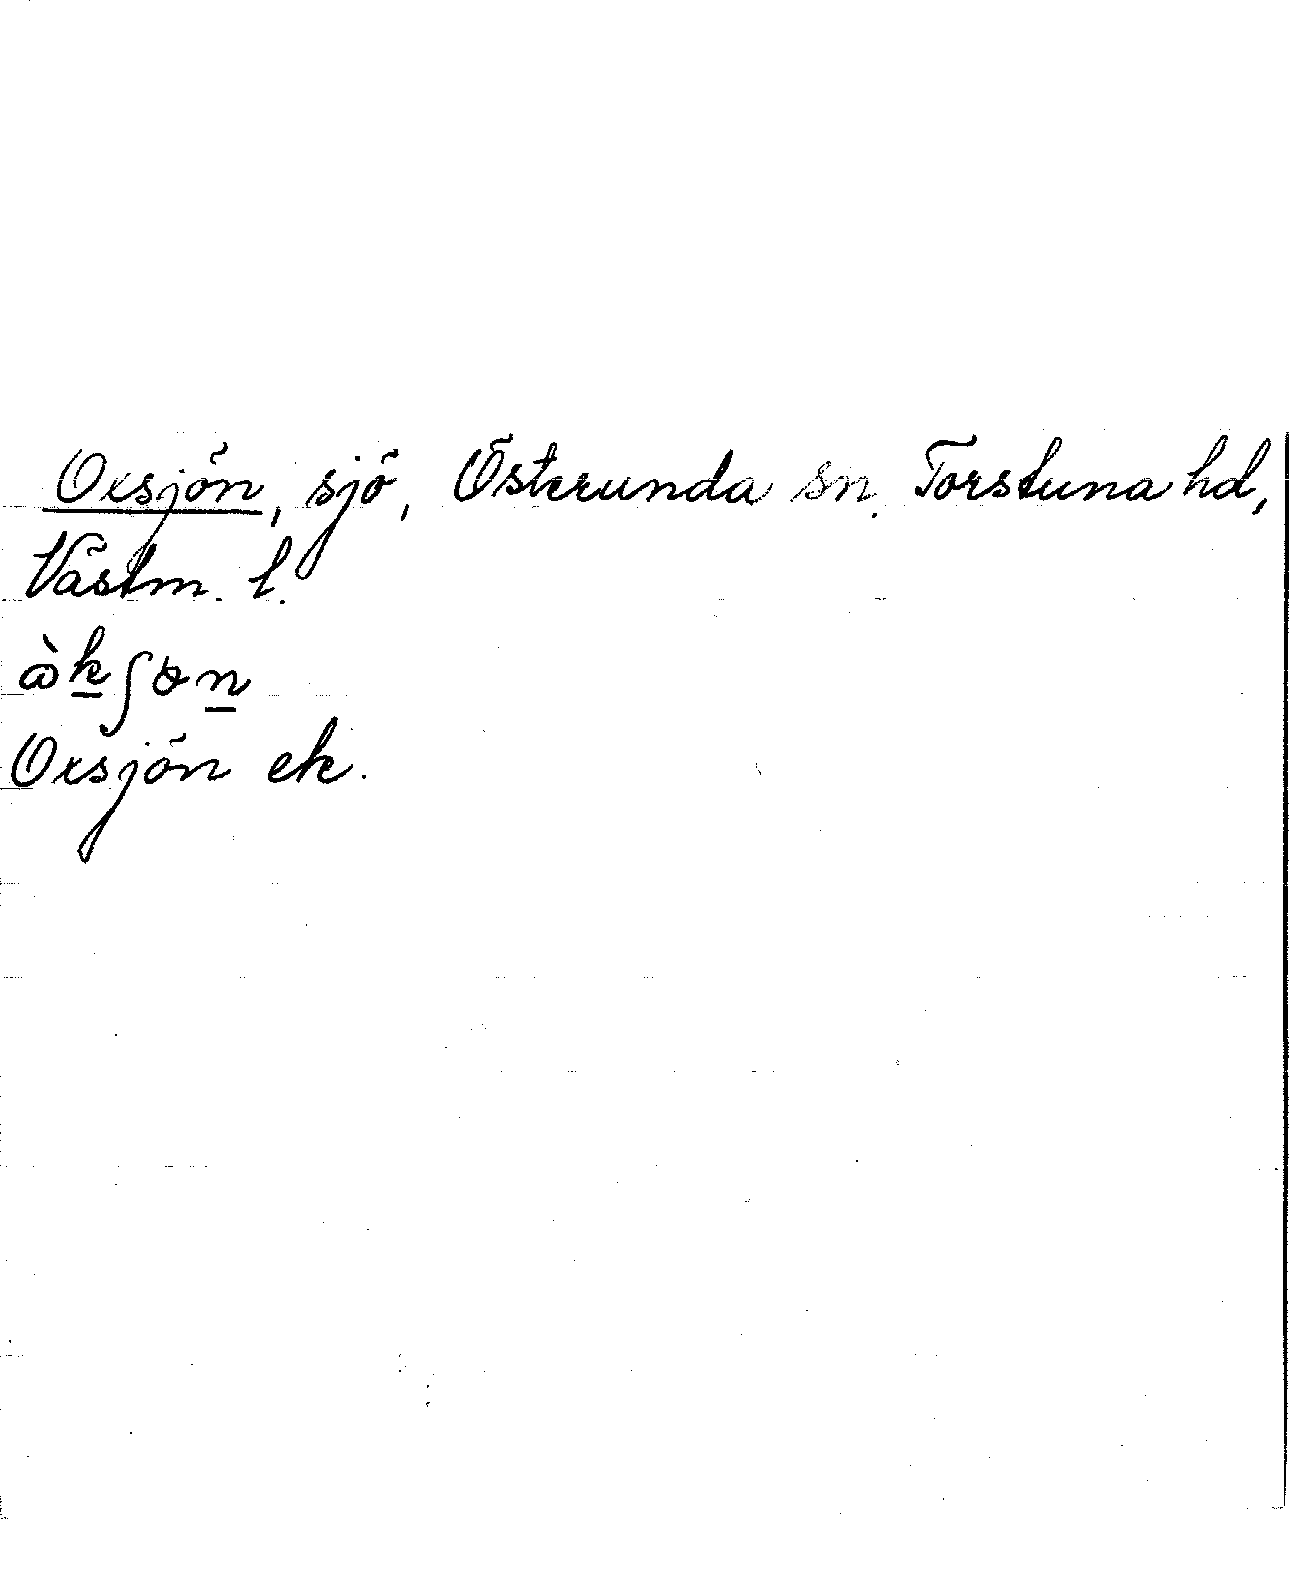 Oxsjön, sjö, Österunda sn. Torstuna hd,
Västm. l.
ὼkʃɵn
Oxsjön ek.